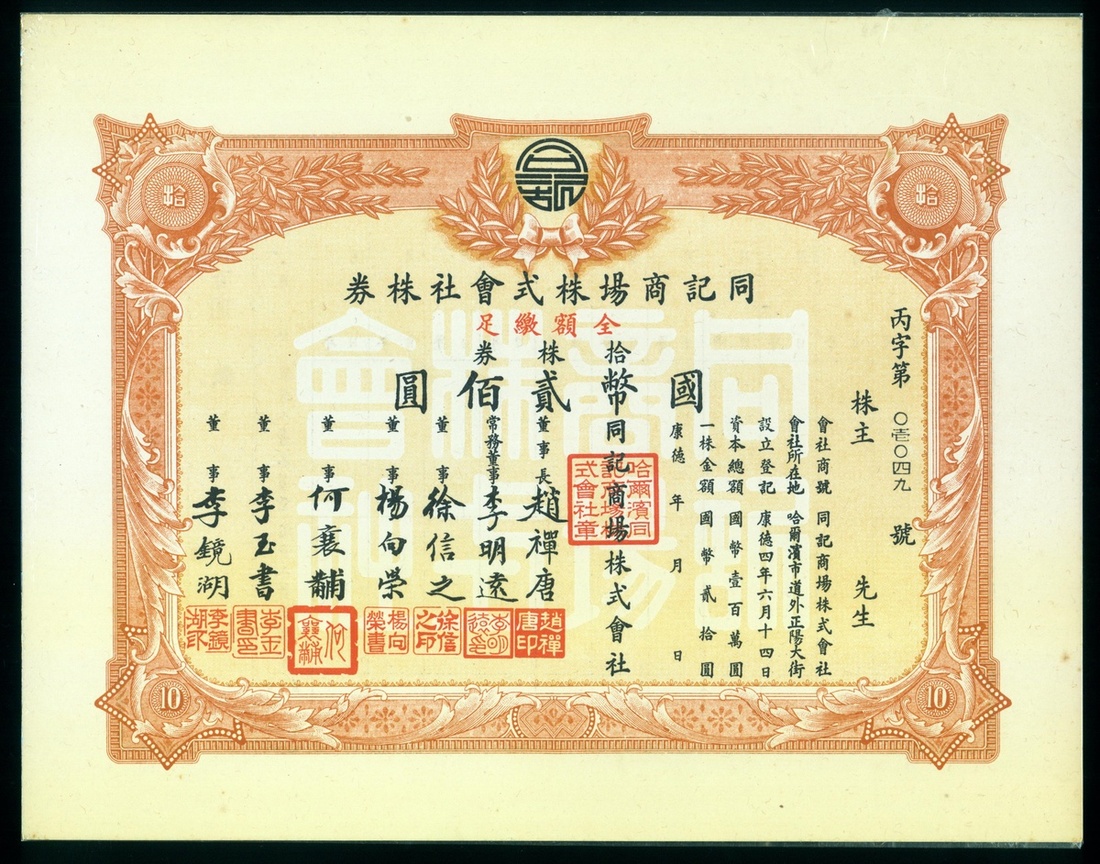 同記商場株式會社株券
全額繳足
拾株券
國幣貳佰圓
丙字第〇壱〇四九號
株主 先生
會社商號 同記商場株式會社
會社所在地 哈爾濱市道外正陽大街
設立登記 康德四年六月十四日
資本總額 國幣壹百萬圓
一株金額 國幣貳拾圓
康德 年 月 日
同記商場株式會社
董事長 趙禪唐
常務董事 李明遠
董事 徐信之
董事 楊向榮
董事 何襄黼
董事 李玉書
董事 李鏡湖
哈爾濱同記商場株式會社章
趙禪唐印
徐信之印
楊向榮書
李鏡湖印
拾
拾
10
10